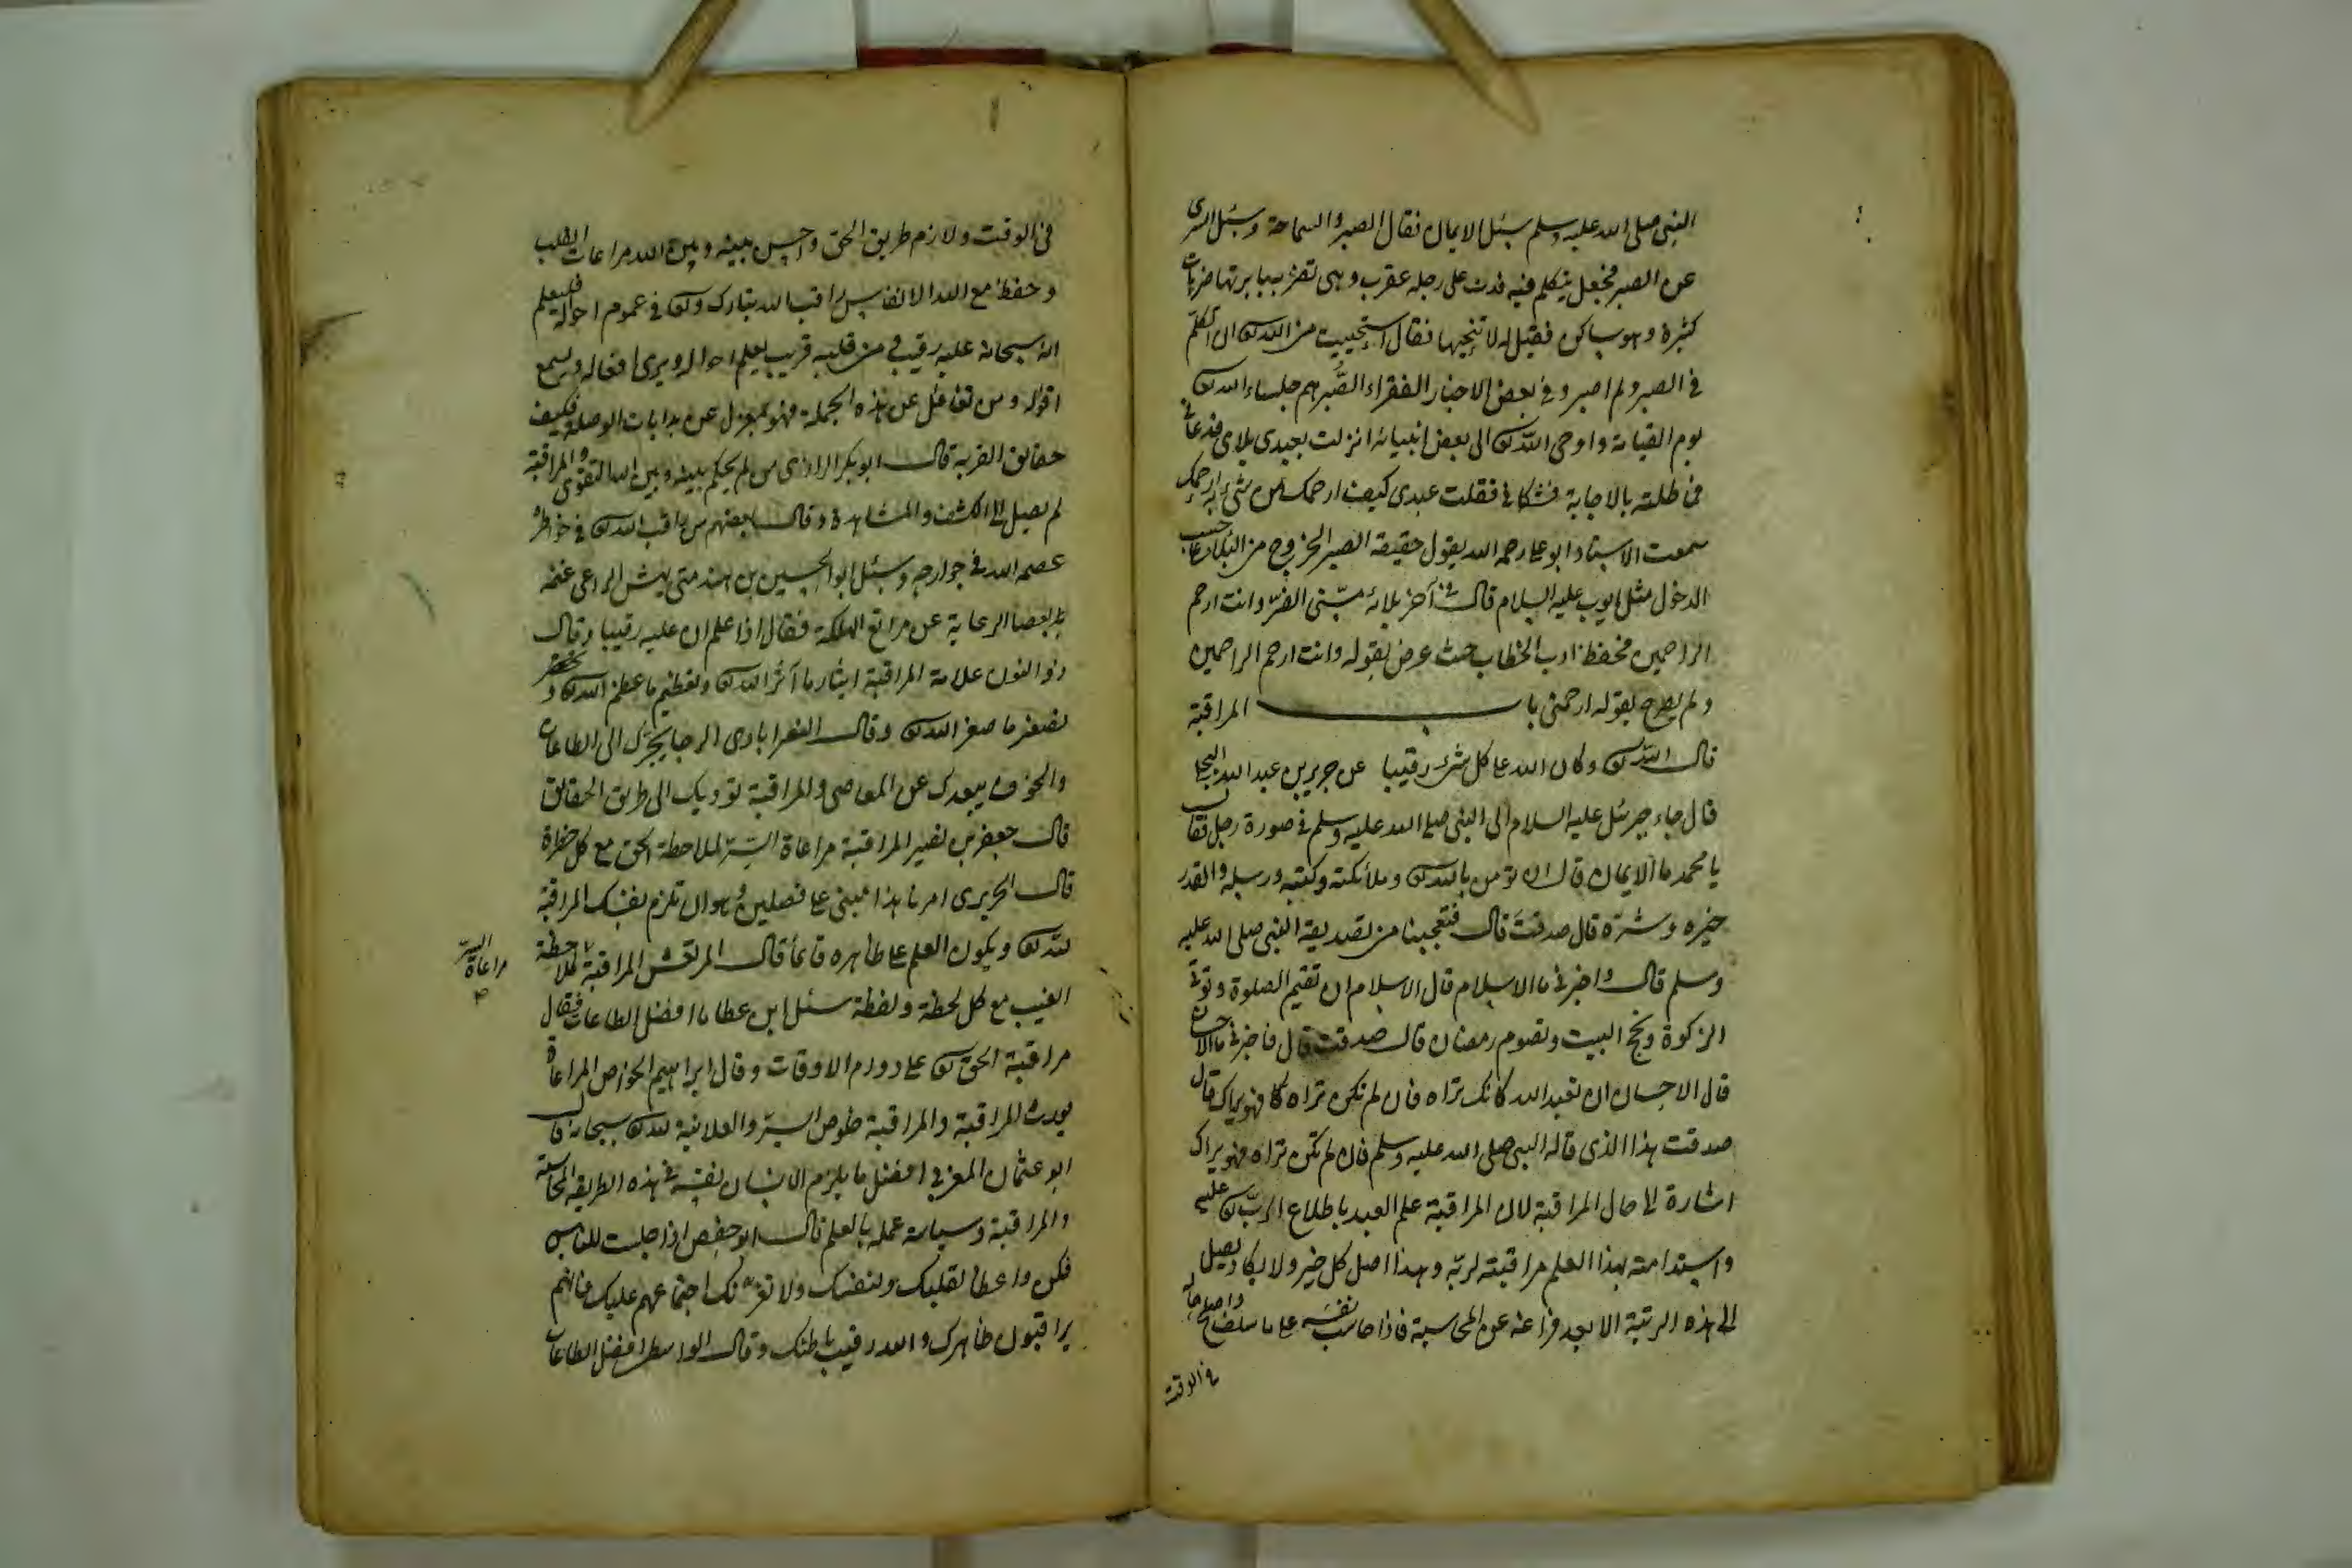 النبی صلی الله علیه وسلم سئل الایمان فقال الصبر والسماحة وسئل السری
عن الصبر فجعل یتکلم فیه فدب علی رجله عقرب وهی تضربه بابرتها ضربات
کثیرة وهو ساکن فقیل له لا تنحیها فقال استحییت من الله تع ان اتکلم
فی الصبر ولم اصبر وفی بعض الاخبار الفقراء الصُّبر هم جلساء الله تع
یوم القیامة واوحی الله تع الی بعض انبیائه انزلت بعبدی بلای فدعانی
فماطلته بالاجابة فشکانی فقلت عبدی کیف ارحمک من شیء به ارحمک
سمعت الاستاد ابو علی رحمه الله یقول حقیقة الصبر الخروج من البلاء علی حسب
الدخول مثل ایوب علیه السلام قال فی آخر بلائه مسّنی الضرّ وانت ارحم
الراحمین فحفظ ادب الخطاب حیث عرض بقوله وانت ارحم الراحمین
ولم یصرح بقوله ارحمنی باب المراقبة
قال الله تع وکان الله علی کل شیء رقیبا عن جریر بن عبد الله البجلی
قال جاء جبرئل علیه السلام الی النبی صلی الله علیه وسلم فی صورة رجل فقال
یا محمد ما الایمان قال ان تؤمن بالله تع وملائکته وکتبه ورسله والقدر
خیره وشره قال صدقت قال فتعجبنا من تصدیقه النبی صلی الله علیه
وسلم قال واخبرنی ما الاسلام قال الاسلام ان تقیم الصلوة وتوتی
الزکوة وتحج البیت وتصوم رمضان قال صدقت قال فاخبرنی ما الاحسان
قال الاحسان ان تعبد الله کانک تراه فان لم تکن تراه فهو یراک قال
صدقت هذا الذی قاله النبی صلی الله علیه وسلم فان لم تکن تراه فهو یراک
اشارة الی حال المراقبة لان المراقبة علم العبد باطلاع الربّ تع علیه
واستدامته بهذا العلم مراقبته لربّه وهذا اصل کل خیر ولا یکاد یصل
الی هذه الرتبة الا بعد فراغه عن المحاسبة فاذا حاسب نفسه علی ما سلف واصلح حاله
فی الوقت
فی الوقت ولازم طریق الحق واحسن بینه وبین الله مراعات القلب
وحفظ مع الله الانفاس راقب الله تبارک وتع فی عموم احواله فیعلم
انه سبحانه علیه رقیب من قلبه قریب یعلم احواله ویری افعاله ویسمع
اقواله ومن تغافل عن هذه الجملة فهو بمعزل عن بدایات الوصلة فکیف
حقایق القربة قال ابو بکر الرازی من لم یحکم بینه وبین الله التقوی والمراقبة
لم یصل الی الکشف والمشاهدة وقال بعضهم من راقب الله تع فی خواطره
عصمه الله فی جوارحه وسئل ابو الحسین بن هند متی یهش الراعی غنمه
بعصا الرعایة عن مراتع الهلکة فقال اذا علم ان علیه رقیبا وقال
ذو النون علامة المراقبة ایثار ما آثر الله تع وتعظیم ما عظم الله تع و
تصغیر ما صغر الله تع وقال النصرابادی الرجا یحرّک الی الطاعات
والخوف یبعدک عن المعاصی والمراقبة تؤدیک الی طریق الحقایق
قال جعفر بن نصیر المراقبة مراعاة السّر لملاحظة الحق مع کل خطرة
قال الجریری امرنا هذا مبنی علی فصلین وهو ان تلزم نفسک المراقبة
لله تع ویکون العلم علی ظاهره قائماً قال المرتعش المراقبة لملاحظة
مراعاة السّر
الغیب مع کل لحظة ولفظة سئل ابن عطا ما افضل الطاعات فقال
مراقبة الحق تع علی دوام الاوقات وقال ابراهیم الخواص المراعاة
یورث المراقبة والمراقبة خلوص السرّ والعلانیة لله سبحانه قال
ابو عثمان المغربی افضل ما یلزم الانسان نفسه فی هذه الطریقه المحاسبة
والمراقبة وسیاسة عمله بالعلم قال ابو حفص اذا جلست للناس
فکن واعظا لقلبک ولنفسک ولا تغرّنک اجتماعهم علیک فانهم
یراقبون ظاهرک والله رقیب باطنک وقال الواسطی افضل الطاعات